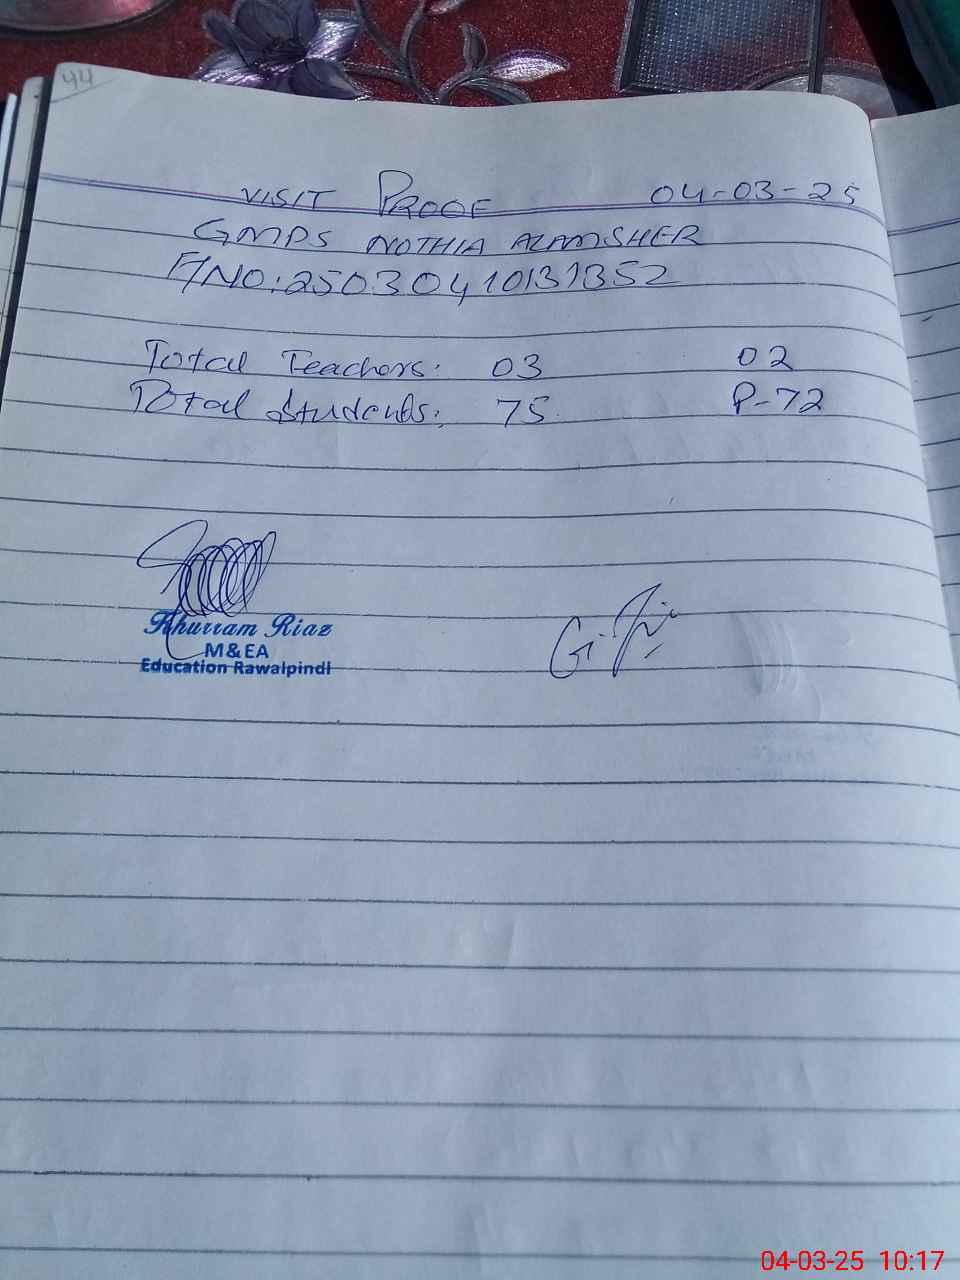 44
VISIT PROOF 04-03-25
GMPS NOTHIA ALAMSHER
F/NO:25030410131352
Total Teachers: 03 02
Total Students: 75 P-72
Khurram Riaz
M&EA
Education Rawalpindi
04-03-25 10:17